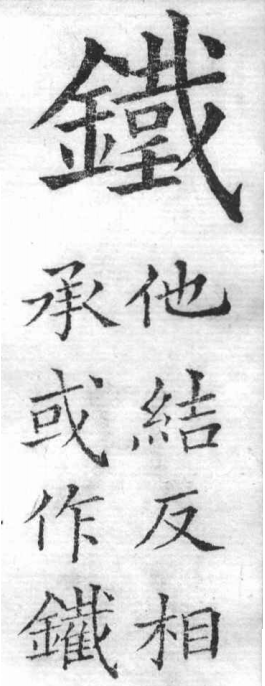 鐵
他結反相
承或作鐡